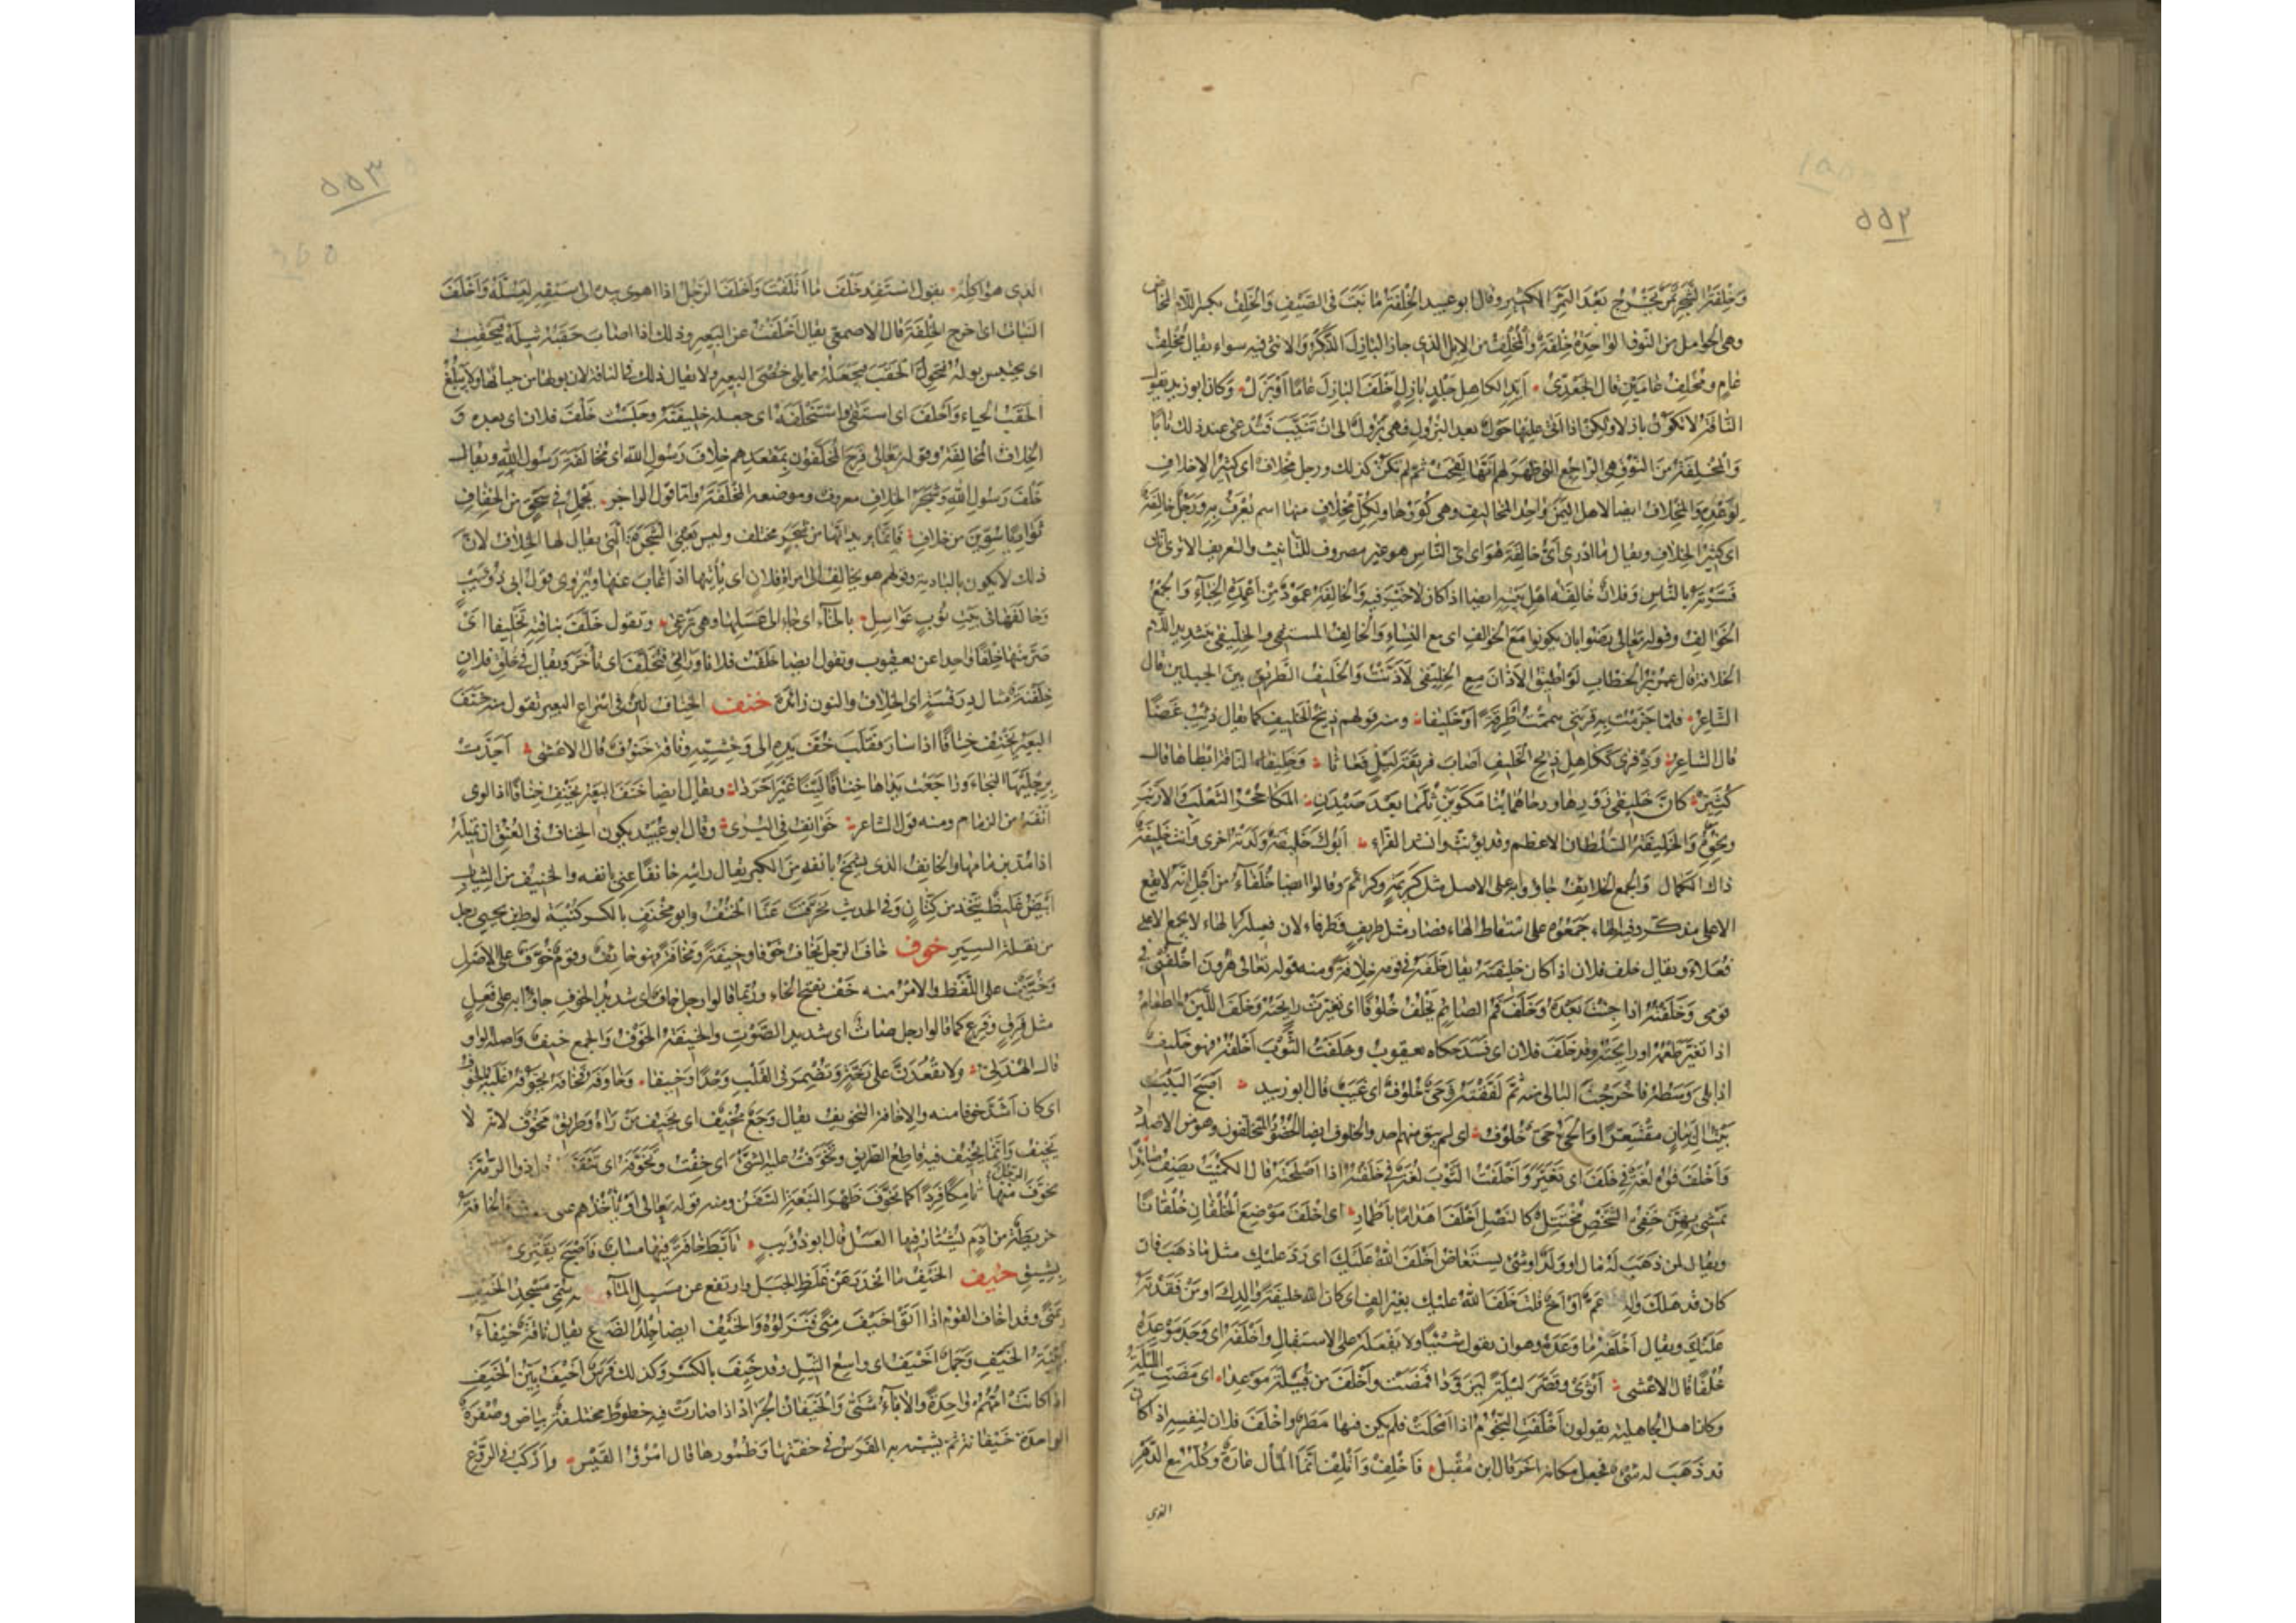 ٥٥٢
وَخِلْفَةُ الشَّجَرِ ثَمَرٌ يَخْرُجُ بَعْدَ الثَّمَرِ الكَثِيرِ وقال ابو عبيد الخِلْفَةُ مَا نَبَتَ فى الصَّيْفِ وَالخَلِفُ بكسر اللام المخاض
وهى الحوامل من النوق الواحِدَةُ خَلِفَةٌ وَالْمُخْلِفُ من الإبل الذى جاز البازِلَ الذَّكَرُ وَالانثى فيه سواء يقال مُخْلِفُ
عَامٍ ومُخْلِفُ عَامَيْنِ قال الجَعْدِىُّ أَيِّدِ الكاهِلِ جَلْدٍ بازِلٍ اَخْلَفَ البازِلَ عَامًا اَوْ بَزَلْ وكان ابو زيد يقول
النَّاقَةُ لا تكون بازلا ولكن اذا اَتَى عليها حَوْلٌ بعد البُزُولِ فهى بَزُولٌ الى ان تُنَيِّبَ فتُدعى عند ذلك نَابًا
وَالمُخْلِفَةُ مِنَ النُّوقِ هى الرَّاجِعُ التى ظهر لهم اَنَّهَا لَقِحَتْ ثم لم تكن كذلك ورجل مِخْلافٌ اى كثير الاِخلافِ
لِوَعْدِهِ وَالمِخْلافُ ايضا لاهل اليَمَنِ وَاحِدُ المَخَالِيفِ وهى كُوَرُهَا ولكلِّ مِخْلافٍ منها اسم يُعْرَفُ به ورَجُلٌ خَالِفَةٌ
اى كثيرُ الخِلافِ ويقال مَا ادْرِى اَىُّ خَالِفَةَ هُوَ اى اىُّ النَّاسِ هو غير مصروف للتأنيث والتعريف الا ترى انك
فَسَّرْتَهُ بالنَّاسِ وَفلانٌ خَالِفَةُ اهلِ بَيْتِهِ ايضا اذا كان لا خَيْرَ فيه وَالخَالِفَةُ عَمُودٌ مِنْ اَعْمِدَةِ الخِبَاءِ وَالجَمْعُ
الخَوَالِفُ وقوله تعالى رَضُوا بان يكونوا مَعَ الخَوَالِفِ اى مع النِّسَاءِ وَالخَالِفُ المستقى والخِلِّيفَى بتشديد اللام
الخلافة قال عمر بن الخطاب لَوْ اُطِيقُ الاَذَانَ مع الخِلِّيفَى لَاَذَّنْتُ وَالخَلِيفُ الطَّرِيقُ بين الجبلين قال
الشَّاعِرُ فلما جَزَمْتُ به قِرْبَتِى تَيَمَّمْتُ اَطْرِقَةً اَوْ خَلِيفَا ومنه قولهم ذِيخُ الخَلِيفِ كما يقال ذِئْبُ غَضًا
قال الشاعر وَذِفْرَى كَكَاهِلِ ذِيخِ الخَلِيفِ اَصَابَ فَرِيقَةَ لَيْلٍ فَعَاثَا وَخَلِيفَا الناقة اِبْطَاهَا قال
كُثَيِّرٌ كَاَنَّ خَلِيفَىْ زَوْرِهَا ورَحَاهُمَا بُنَا مَكَوَيْنِ ثُلِّمَا بَعْدَ صَيْدَنِ المَكَا جُحْرُ الثَّعْلَبِ وَالاَرْنَبِ
ونحوه وَالخَلِيفَةُ السُّلْطَانُ الاعظم وقد يؤنث وانشد الفراء اَبُوكَ خَلِيفَةٌ وَلَدَتْهُ اُخرى وَانت خَلِيفَةٌ
ذاك الكمال وَالجمع الخَلائِفُ جاؤوا به على الاصل مثل كَرِيمَةٍ وكَرَائِمَ وقالوا ايضا خُلَفَاءُ من اَجْلِ انه لا يقع
الا على مذكّر وفيه الهاء جَمَعُوهُ على اسْقَاطِ الهاء فصار مثل ظَرِيفٍ وظُرَفَاء لان فعيلة بالهاء لا يجمع الا على
فُعَلاءَ ويقال خلف فلان اذا كان خليفته يقال خَلَفَهُ فى قومه خِلافَةً ومنه قوله تعالى هرونَ اخْلُفْنِى فى
قومى وَخَلَفْتُهُ اذا جِئْتَ بَعْدَهُ وَخَلَفَ فَمُ الصَّائِمِ يَخْلُفُ خُلُوفًا اى تغيّرت رائحَتُهُ وَخَلَفَ اللَّبَنُ والطعام
اذا تغيّر طَعْمُهُ او رائحته وقد خَلَفَ فلان اى فَسَدَ حكاه يعقوب وخَلَفْتُ الثَّوْبَ اَخْلُفُهُ فهو خَلِيفٌ
اذا بَلِىَ وَسَطُهُ فاَخْرَجْتَ البالى منه ثُمَّ لَفَقْتَهُ وَحَىٌّ خُلُوفٌ اى غُيَّبٌ قال ابو زبيد اَصْبَحَ البَيْتُ
بَيْتُ آلِ بَيَانٍ مُقْشَعِرًّا وَالحَىُّ حَىٌّ خُلُوفُ اى لم يبق منهم احد والخلوف ايضا الحُضُورُ المتخلفون وهو من الاضداد
وَاَخْلَفَ فُوهُ لُغَةٌ فى خَلَفَ اى تَغَيَّرَ وَاَخْلَفْتُ الثَّوْبَ لُغَةٌ فى خَلَفْتُهُ اذا اَصْلَحْتَهُ قال الكُمَيْتُ يَصِفُ صَائِدًا
يَمْشِى بِهِنَّ خَفِىُّ الشَّخْصِ مُخْتَتِلٌ كالنَّصْلِ اَخْلَفَ اَهْدَامًا بِاَطْمَارِ اى اخْلَفَ مَوْضِعَ الخُلْقَانِ خُلْقَانًا
ويقال لمن ذهَبَ لَهُ مَال او وَلَدٌ او شَىْءٌ يستعاض اَخْلَفَ اللهُ عَلَيْكَ اى رَدَّ عليك مثل مَا ذهَبَ فان
كان قد هَلَكَ والِدٌ عَمٌّ اَوْ اَخٌ قلت خَلَفَ اللهُ عليك بغير الف اى كان اللهُ خليفَةَ والِدِكَ او مَنْ فَقَدْتَهُ
عَلَيْكَ ويقال اَخْلَفَهُ مَا وَعَدَهُ وهو ان يقول شَيْئًا ولا يَفْعَلَهُ على الاستقبال وَاَخْلَفَهُ اى وَجَدَ مَوْعِدَهُ
خُلْفًا قال الاعشى اَثْوَى وقَصَّرَ لَيْلَةً لِيُزَوَّدَا فَمَضَتْ وَاَخْلَفَ مِنْ قُتَيْلَةَ مَوْعِدَا اى مَضَتِ اللَّيْلَةُ
وكان اهل الجاهلية يقولون اَخْلَفَتِ النُّجُومُ اذا اَمْحَلَتْ فلم يكن فيها مَطَرٌ وَاَخْلَفَ فلان لِنفسِهِ اذا كان
قد ذَهَبَ له شَىْءٌ فجعل مكانه آخر قال ابن مُقْبِل فَاَخْلِفْ وَاَتْلِفْ اِنَّمَا المالُ عَارَةٌ وَكُلْهُ مَعَ الدَّهْرِ
الذى
٥٥٣
الذى هو آكِلُهْ يقول اسْتَفِدْ خَلَفَ مَا اَتْلَفْتَ وَاَخْلَفَ الرَّجُلُ اذا اهوى بيده الى سَيْفِهِ لِيَسُلَّهُ وَاَخْلَفَ
النَّبَاتُ اى اخرج الخِلْفَةَ قال الاصمعى يقال اَخْلَفْتُ عن البَعِيرِ وذلك اذا اصَابَ حَقَبُهُ ثِيلَهُ فَيَحْقَبُ
اى يحتبس بوله فَتُحَوِّلُ الحَقَبَ فتجعَلُهُ مما يلى خُصْيَىِ البعير ولا يقال ذلك فى الناقة لان بولها من حيائها ولا يَبْلُغُ
الحَقَبُ الحياءَ وَاَخْلَفَ اى استَقَى وَاسْتَخْلَفَهُ اى جعله خليفَتَهُ وجَلَسْتُ خَلْفَ فلان اى بعده وَ
الخِلافُ المُخَالَفَةُ وقوله تعالى فَرِحَ المُخَلَّفُونَ بِمَقْعَدِهِم خِلافَ رَسُولِ اللهِ اى مُخَالَفَةَ رَسُولِ اللهِ ويقال
خَلْفَ رَسُولِ اللهِ وَشَجَرُ الخِلافِ معروف وموضعه المَخْلَفَةُ وَامّا قول الراجز يَحْمِلُ فى سَحْقٍ مِنَ الخِفَافِ
تَوَادِيًا سُوِّينَ مِنْ خِلافِ فَاِنَّمَا يريد انّها من شَجَرٍ مختلف وليس يَعْنِى الشَّجَرَةَ الَّتى يقال لها الخِلافُ لانّ
ذلك لا يكون بالبادية وقولهم هو يخالِفُ الى امراةِ فلان اى يأتيها اذا غَابَ عنها ويُرْوَى قول ابى ذُؤَيبٍ
وَخَالَفَهَا فى بَيْتِ نُوبٍ عَوَاسِلِ بالخَاءِ اى جَاءَ الى عَسَلِهَا وهى تَرْعَى وتقول خَلَّفَ بناقتِهِ تَخْلِيفًا اى
صَرَّ منها خِلْفًا واحدا عن يعقوب وتقول ايضا خَلَّفْتُ فلانا وَرَائى فتَخَلَّفَ اى تأخَّرَ ويقال فى خُلُقِ فلانٍ
خِلَفْنَةٌ مثال دِرَفْسَةٍ اى الخلاف والنون زائدة خنف الخِنَافُ لِينٌ فى ارساغ البعير تقول منه خَنَفَ
البَعِيرُ يَخْنِفُ خِنَافًا اذا سار فقَلَبَ خُفَّ يَدِهِ الى وَحْشِيِّهِ وناقة خَنُوفٌ قال الاعشى اَجَدَّتْ
بِرِجْلَيْهَا النَّجَاءَ وَرَاجَعَتْ يَدَاهَا خِنَافًا لَيِّنًا غَيْرَ اَحْرَدَا ويقال ايضا خَنَفَ البعيرُ يَخْنِفُ خِنَافًا اذا لوى
اَنْفَهُ من الزمام ومنه قول الشاعر خَوَانِفُ فِى البُرَى وقال ابو عُبَيْد يكون الخِنَافُ فى العُنُقِ ان تُمِيلَهُ
اذا مُدَّ بزمامها والخانِفُ الذى يَشْمَخُ بانفه مِنَ الكِبْرِ يقال رايته خانفًا عَنِّى بانفه والخَنِيفُ من الثياب
اَبْيَضُ غَلِيظٌ يتّخذ من كَتَّانٍ وفى الحديث تَخَرَّقَتْ عَنَّا الخُنُفُ وابو مِخْنَفٍ بالكسر كُنْيَةُ لوط بن يحيى رجل
من نَقَلَةِ السِّيَرِ خوف خَافَ الرجل يَخَافُ خَوْفًا وخِيفَةً ومَخَافَةً فهو خائف وقومٌ خُوَّفٌ على الاَصْلِ
وَخُيَّفٌ على اللَّفْظِ والامْرُ منه خَفْ بفتح الخاء ورُبَّمَا قالوا رجل خَافٌ اى شديد الخوف جاؤا به على فَعِلٍ
مثل فَرِقٍ وفَزِعٍ كما قالوا رجل صَاتٌ اى شديد الصَّوْتِ وَالخِيفَةُ الخَوْفُ وَالجمع خِيفٌ واصله الواو
قال الهُذَلِىُّ ولا تَقْعُدَنَّ على زَخَّةٍ وَتُضْمِرَ فى القَلْبِ وَجْدًا وَخِيفَا وخَاوَفَهُ فخَافَهُ يَخُوفُهُ غَلَبَهُ بالخوف
اى كان اَشَدَّ خوفا منه والاِخَافَةُ التخويف يقال وَجَعٌ مُخِيفٌ اى يُخِيفُ مَنْ رَآهُ وَطَرِيقٌ مَخُوفٌ لانه لا
يُخِيفُ وَاِنَّمَا يُخِيفُ فيه قاطِعُ الطَّرِيقِ وتَخَوَّفْتُ عليه الشَّىءَ اى خِفْتُ وتَخَوَّفَهُ اى تَنَقَّصَهُ ذو الرُّمَّةِ
تَخَوَّفَ الرَّحْلُ مِنْهَا تَامِكًا قَرِدًا كما تَخَوَّفَ ظَهْرَ النَّبْعَةِ السَّفَنُ ومنه قوله تعالى اَوْ يَأْخُذَهُم على وَالخَافَةُ
خَرِيطَةٌ مِنْ اَدَمٍ يُشْتَارُ فيها العَسَلُ قال ابو ذُؤَيبٍ تَاَبَّطَ خَافَةً فِيهَا مِسَابٌ فَاَصْبَحَ يَقْتَرِى
بِشِيقِ خيف الخَيْفُ مَا انْحَدَرَ عَنْ غِلَظِ الجَبَلِ وارتفع عن مَسِيلِ المَاءِ سُمِّى مَسْجِدُ الخَيْفِ
بِمِنًى وقد اخَافَ القومُ اذا اَتَوْا خَيْفَ مِنًى فَنَزَلُوهُ وَالخَيْفُ ايضا جِلْدُ الضَّرْعِ يقال نَاقَةٌ خَيْفَاءُ
بَيِّنَةُ الخَيَفِ وَجَمَلٌ اَخْيَفُ اى واسِعُ الثِّيلِ وقد خَيِفَ بالكَسْرِ وكذلك فَرَسٌ اَخْيَفُ بَيِّنُ الخَيَفِ
اذا كانت اُمُّهُمْ وَاحِدَةً وَالآبَاءُ شَتَّى وَالخَيْفَانُ الجَرَادُ اذا صَارَتْ فيه خطوطٌ مختلفةٌ بياض وصُفْرَةٌ
الواحدة خَيْفَانَةٌ ثم يُشَبَّهُ بِهِ الفَرَسُ فى خِفَّتِهَا وَضُمُورِهَا قال امْرُؤُ القَيْسِ وَاَرْكَبُ فى الرَّوْعِ